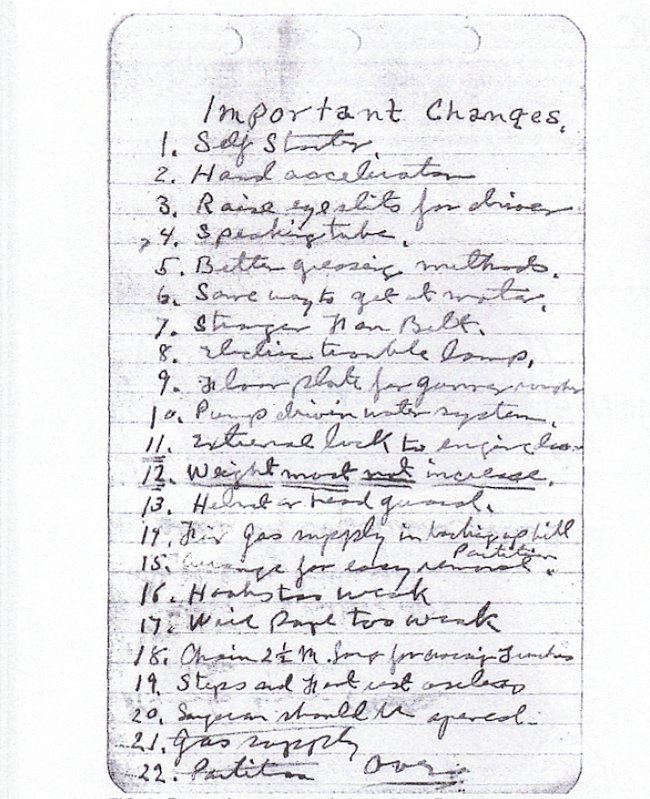 Important Changes.
1. Self Starter.
2. Hand accelerator
3. Raise eye slits for driver
4. Speaking tube.
5. Better greasing methods.
6. Some way to get at motor.
7. Stronger Fan Belt.
8. Electric trouble lamp.
9. Floor plate for gunner
10. Pump driven water system.
11. External lock to engine door
12. Weight must not increase.
13. Helmet or head guard.
14. Fix gas supply in backing up hill
15. Arrange for easy removal. Partition
16. Hooks too weak
17. Wire Rope too weak
18. Chain 2½ M. long for crossing Trenches
19. Steps and Foot rest useless
20. should be
21. Gas supply
22. Partition Over